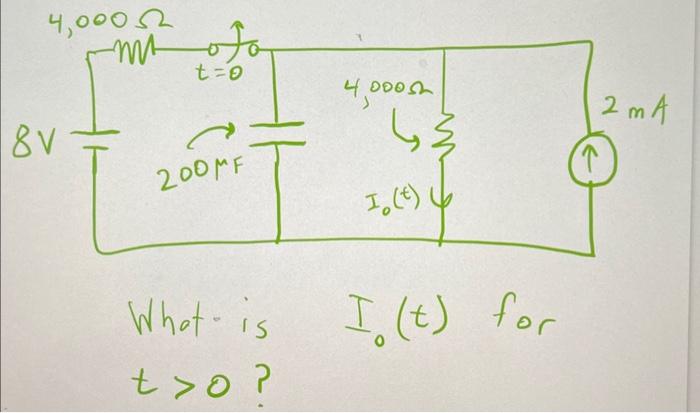 4,000Ω
t=0
4,000Ω
2 mA
8V
200μF
I₀(t)
What is I₀(t) for
t>0?